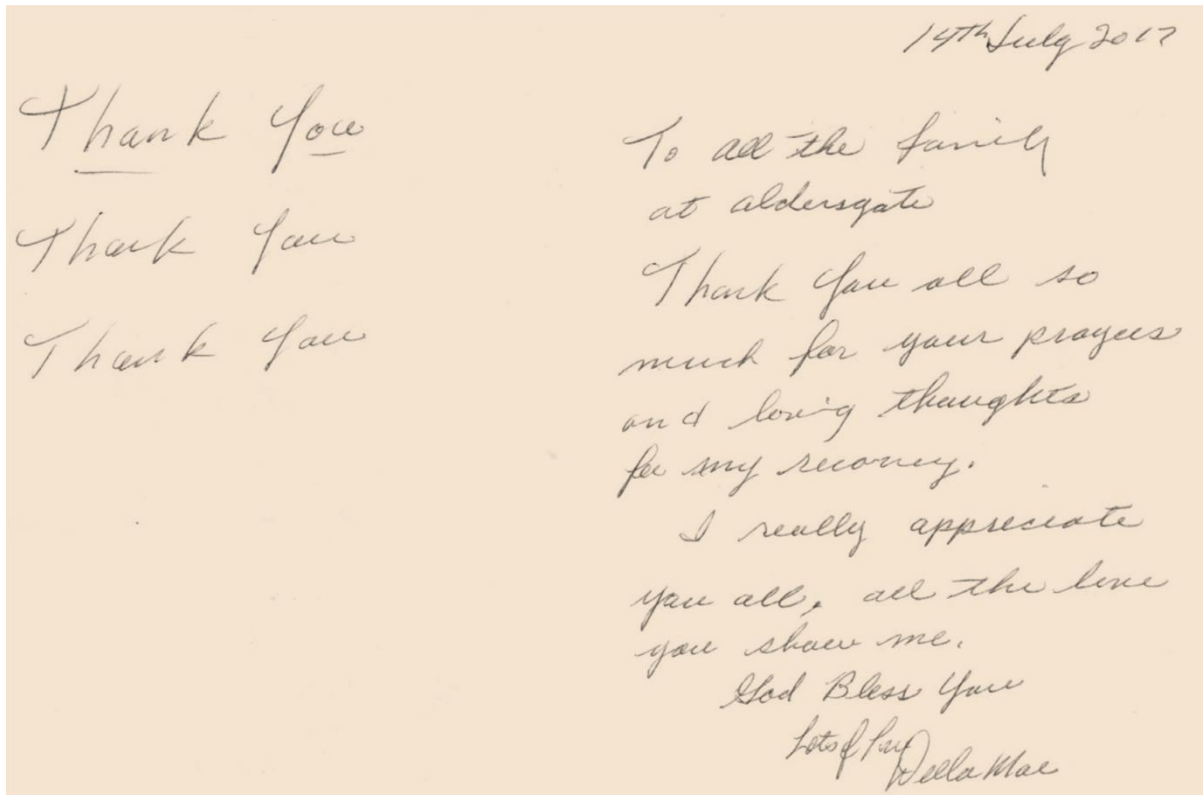 Thank You
Thank You
Thank You
14th July 2017
To all the family
at aldersgate
Thank You all so
much for your prayers
and loving thoughts
for my recovery.
I really appreciate
you all, all the love
you show me.
God Bless You
Lots of Love
Della Mae